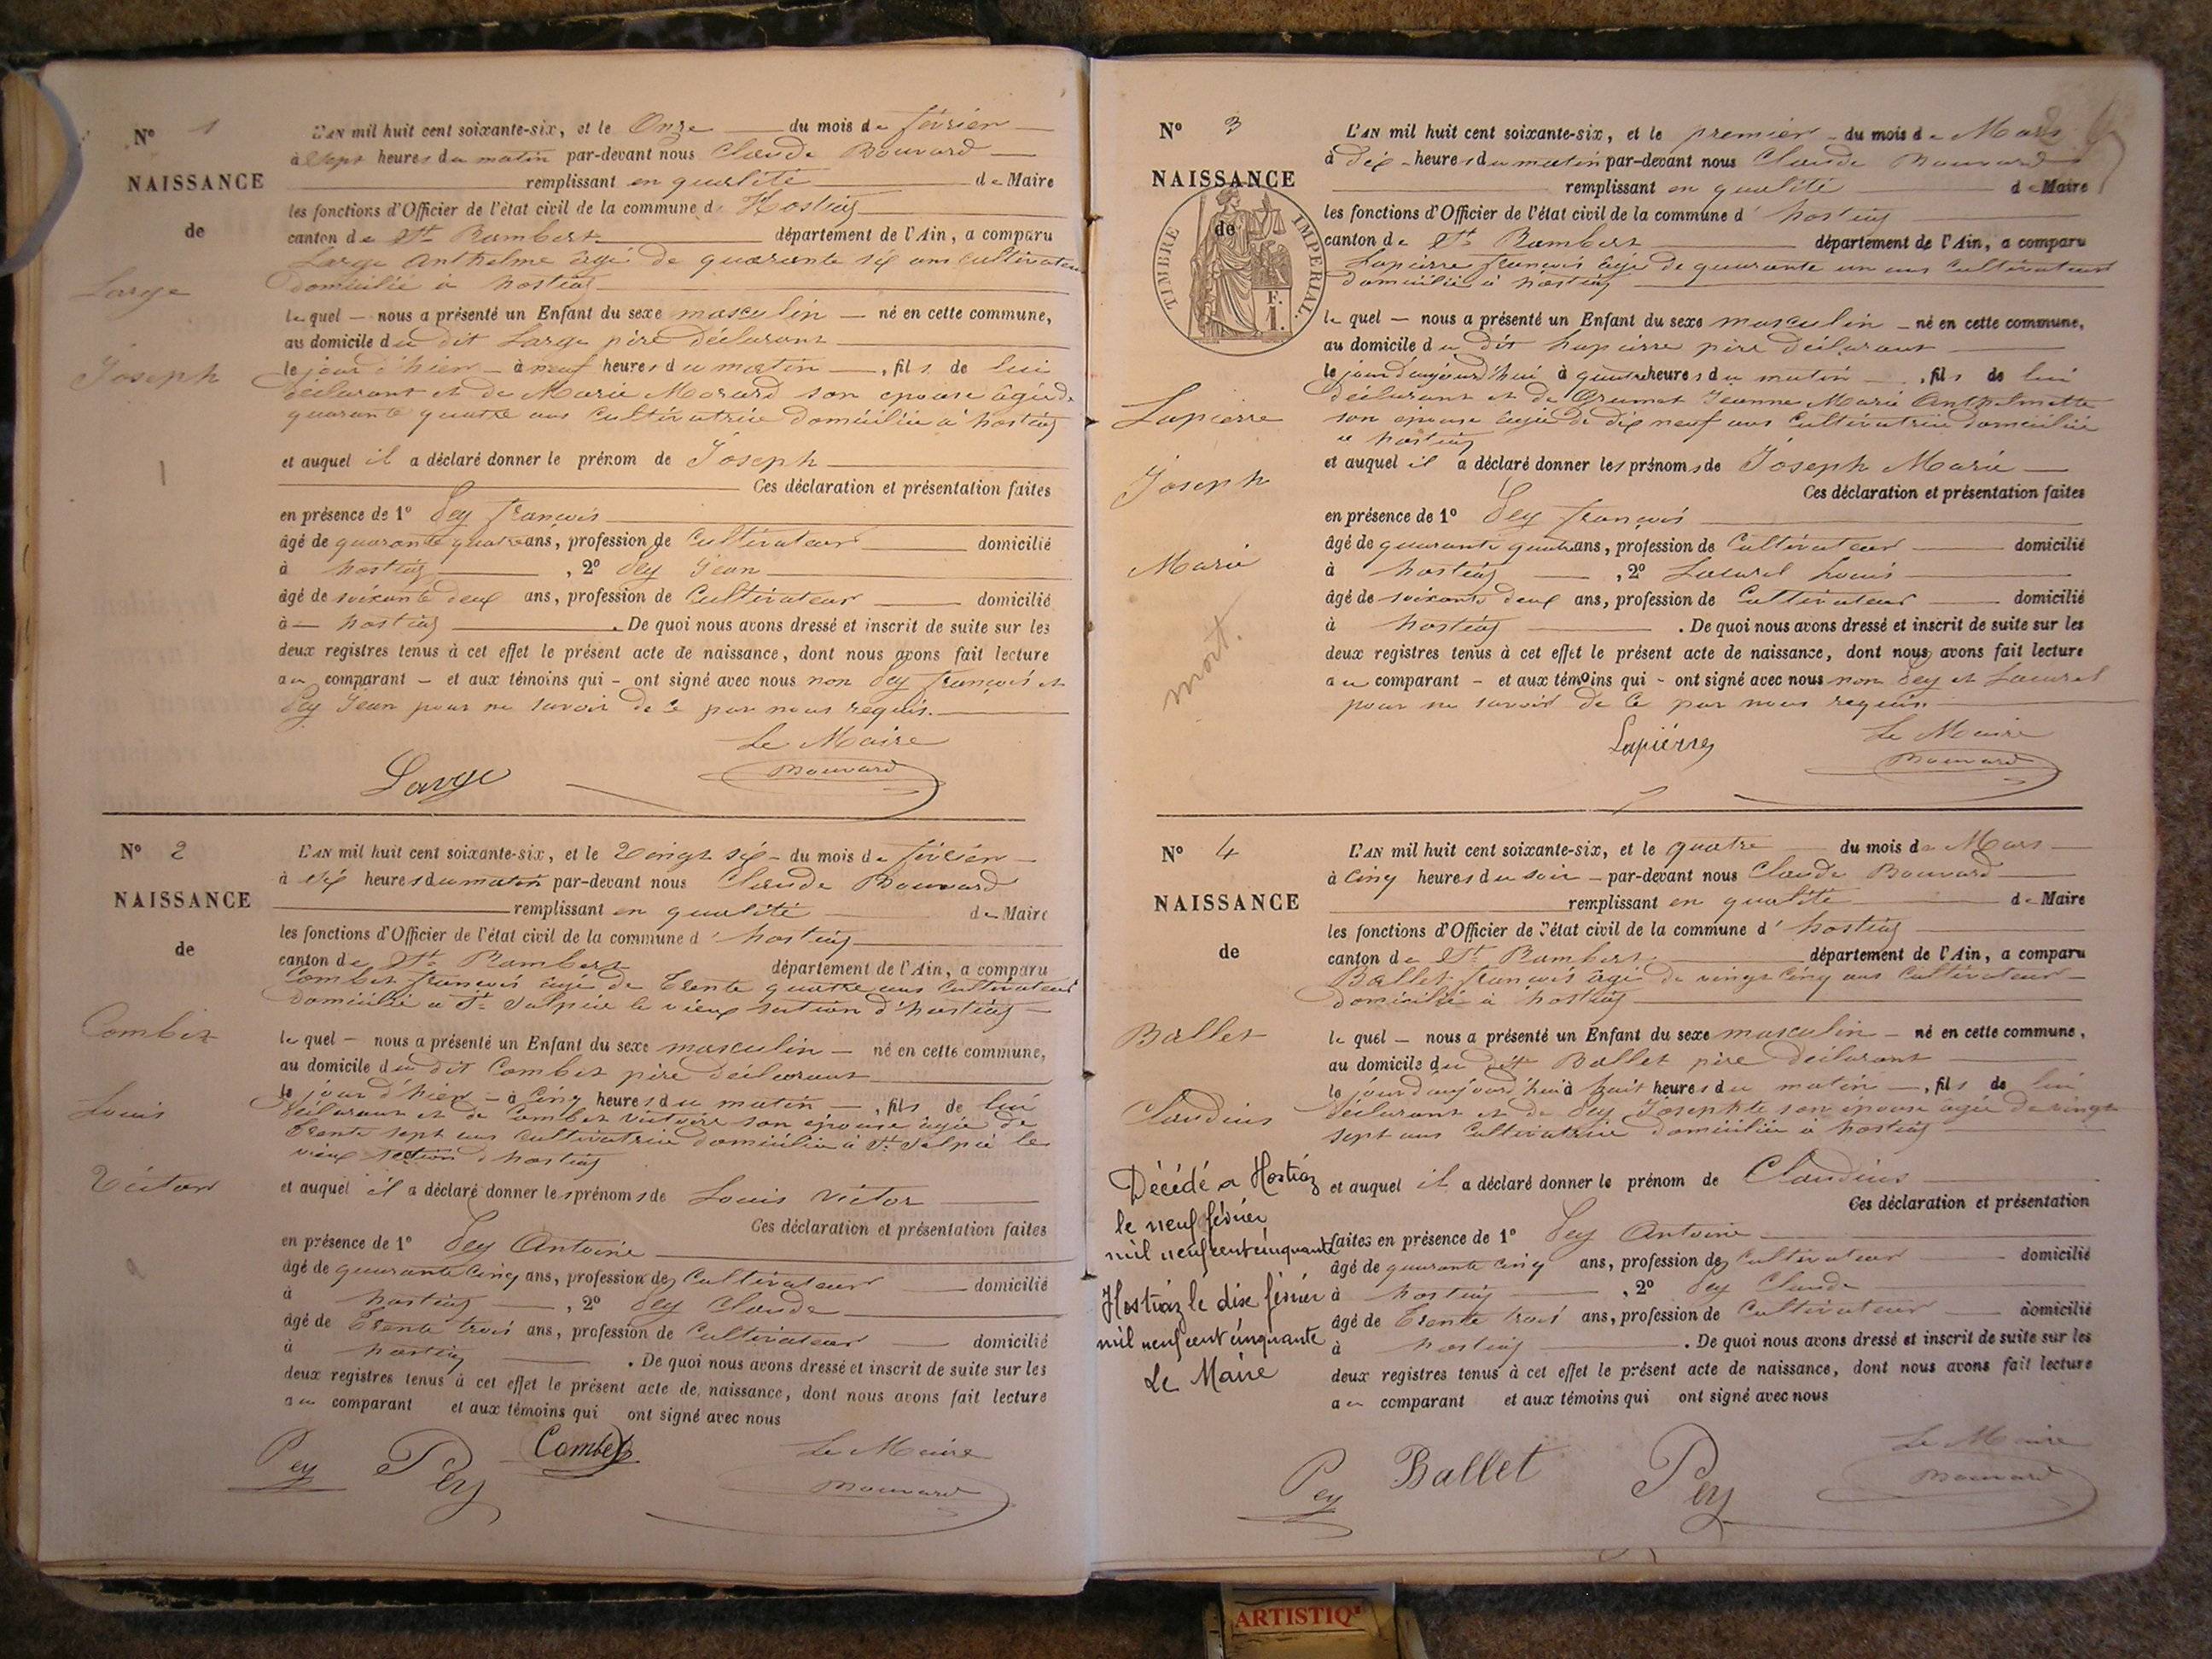 N° 1
NAISSANCE
de
Large
Joseph
1
L'AN mil huit cent soixante-six, et le Onze du mois de février
à Sept heures du matin par-devant nous Claude Bouvard
remplissant en qualité de Maire
les fonctions d'Officier de l'état civil de la commune d' Hostiaz
canton de St Rambert département de l'Ain, a comparu
Large Anthelme âgé de quarante six ans cultivateur
domicilié à hostiaz
lequel nous a présenté un Enfant du sexe masculin né en cette commune,
au domicile du dit Large père déclarant
le jour d'hier à neuf heures du matin, fils de lui
déclarant et de Marie Morard son épouse âgée de
quarante quatre ans Cultivatrice domiciliée à hostiaz
et auquel il a déclaré donner le prénom de Joseph
Ces déclaration et présentation faites
en présence de 1° Pey françois
âgé de quarante quatre ans, profession de Cultivateur domicilié
à hostiaz, 2° Pey Jean
âgé de soixante deux ans, profession de Cultivateur domicilié
à hostiaz. De quoi nous avons dressé et inscrit de suite sur les
deux registres tenus à cet effet le présent acte de naissance, dont nous avons fait lecture
au comparant et aux témoins qui ont signé avec nous non Pey françois et
Pey Jean pour ne savoir de ce par nous requis.
Le Maire
Large Bouvard
N° 2
NAISSANCE
de
Combet
Louis
Victor
L'AN mil huit cent soixante-six, et le Vingt six du mois de février
à dix heures du matin par-devant nous Claude Bouvard
remplissant en qualité de Maire
les fonctions d'Officier de l'état civil de la commune d' hostiaz
canton de St Rambert département de l'Ain, a comparu
Combet françois âgé de Trente quatre ans Cultivateur
domicilié a St Sulpice le vieux section d'hostiaz
lequel nous a présenté un Enfant du sexe masculin né en cette commune,
au domicile du dit Combet père déclarant
le jour d'hier à Cinq heures du matin, fils de lui
déclarant et de Combet Victoire son épouse âgée de
trente sept ans Cultivatrice domiciliée à St Sulpice le
vieux section d'hostiaz
et auquel il a déclaré donner les prénoms de Louis Victor
Ces déclaration et présentation faites
en présence de 1° Pey Antoine
âgé de quarante Cinq ans, profession de Cultivateur domicilié
à hostiaz, 2° Pey Claude
âgé de Trente trois ans, profession de Cultivateur domicilié
à hostiaz. De quoi nous avons dressé et inscrit de suite sur les
deux registres tenus à cet effet le présent acte de naissance, dont nous avons fait lecture
au comparant et aux témoins qui ont signé avec nous
Pey Pey Combet Le Maire
Bouvard
N° 3
NAISSANCE
de
TIMBRE IMPERIAL
F.
1.
Lapierre
Joseph
Marie
mort.
L'AN mil huit cent soixante-six, et le premier du mois de Mars
à dix heures du matin par-devant nous Claude Bouvard
remplissant en qualité de Maire
les fonctions d'Officier de l'état civil de la commune d' hostiaz
canton de St Rambert département de l'Ain, a comparu
Lapierre françois âgé de quarante un ans Cultivateur
domicilié à hostiaz
lequel nous a présenté un Enfant du sexe masculin né en cette commune,
au domicile du dit Lapierre père déclarant
le jour d'aujourd'hui à quatre heures du matin, fils de lui
déclarant et de Grumet Jeanne Marie Anthelmette
son épouse âgée de dix neuf ans Cultivatrice domiciliée
a hostiaz
et auquel il a déclaré donner les prénoms de Joseph Marie
Ces déclaration et présentation faites
en présence de 1° Pey françois
âgé de quarante quatre ans, profession de Cultivateur domicilié
à hostiaz, 2° Louis
âgé de soixante deux ans, profession de Cultivateur domicilié
à hostiaz. De quoi nous avons dressé et inscrit de suite sur les
deux registres tenus à cet effet le présent acte de naissance, dont nous avons fait lecture
au comparant et aux témoins qui ont signé avec nous non Pey et
pour ne savoir de ce par nous requis.
Lapierre Le Maire
Bouvard
N° 4
NAISSANCE
de
Ballet
Claudius
Décédé a Hostiaz
le neuf février
mil neuf cent cinquante
Hostiaz le dix février
mil neuf cent cinquante
Le Maire
L'AN mil huit cent soixante-six, et le quatre du mois de Mars
à Cinq heures du soir par-devant nous Claude Bouvard
remplissant en qualité de Maire
les fonctions d'Officier de l'état civil de la commune d' hostiaz
canton de St Rambert département de l'Ain, a comparu
Ballet françois âgé de vingt Cinq ans Cultivateur
domicilié à hostiaz
lequel nous a présenté un Enfant du sexe masculin né en cette commune,
au domicile du dit Ballet père déclarant
le jour d'aujourd'hui à huit heures du matin, fils de lui
déclarant et de Pey Josephte son épouse âgée de vingt
sept ans Cultivatrice domiciliée à hostiaz
et auquel il a déclaré donner le prénom de Claudius
Ces déclaration et présentation
faites en présence de 1° Pey Antoine
âgé de quarante cinq ans, profession de Cultivateur domicilié
à hostiaz, 2° Pey Claude
âgé de Trente trois ans, profession de Cultivateur domicilié
à hostiaz. De quoi nous avons dressé et inscrit de suite sur les
deux registres tenus à cet effet le présent acte de naissance, dont nous avons fait lecture
au comparant et aux témoins qui ont signé avec nous
Pey Ballet Pey Le Maire
Bouvard
ARTISTIQ